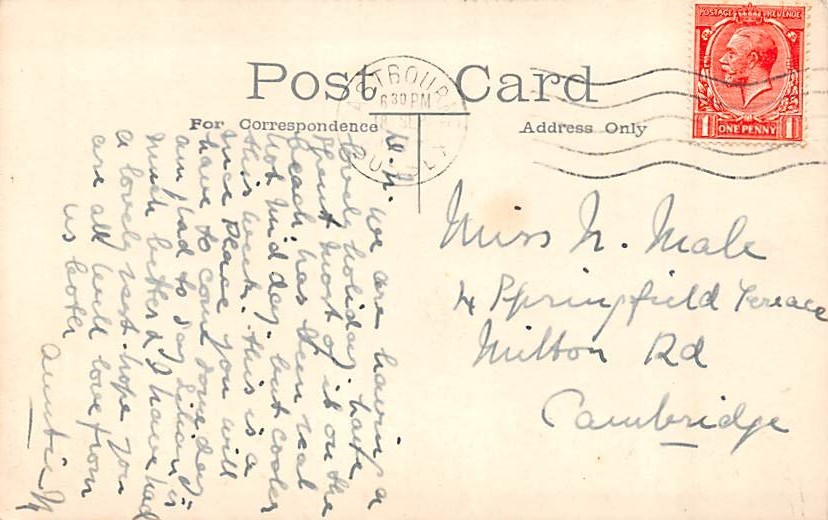 Post Card
For Correspondence
Address Only
POSTAGE REVENUE
1 ONE PENNY 1
EASTBOURNE
6 30 PM
D. N. we are having a
lovely holiday. have
spent most of it on the
beach. has been real
hot mid day. but cooler
this week. this is a
nice place you will
have to come some day
am glad to say Lilian is
much better & I have had
a lovely rest. hope you
are all well love from
us both
Auntie N
Miss N. Male
4 Springfield Terrace
Milton Rd
Cambridge